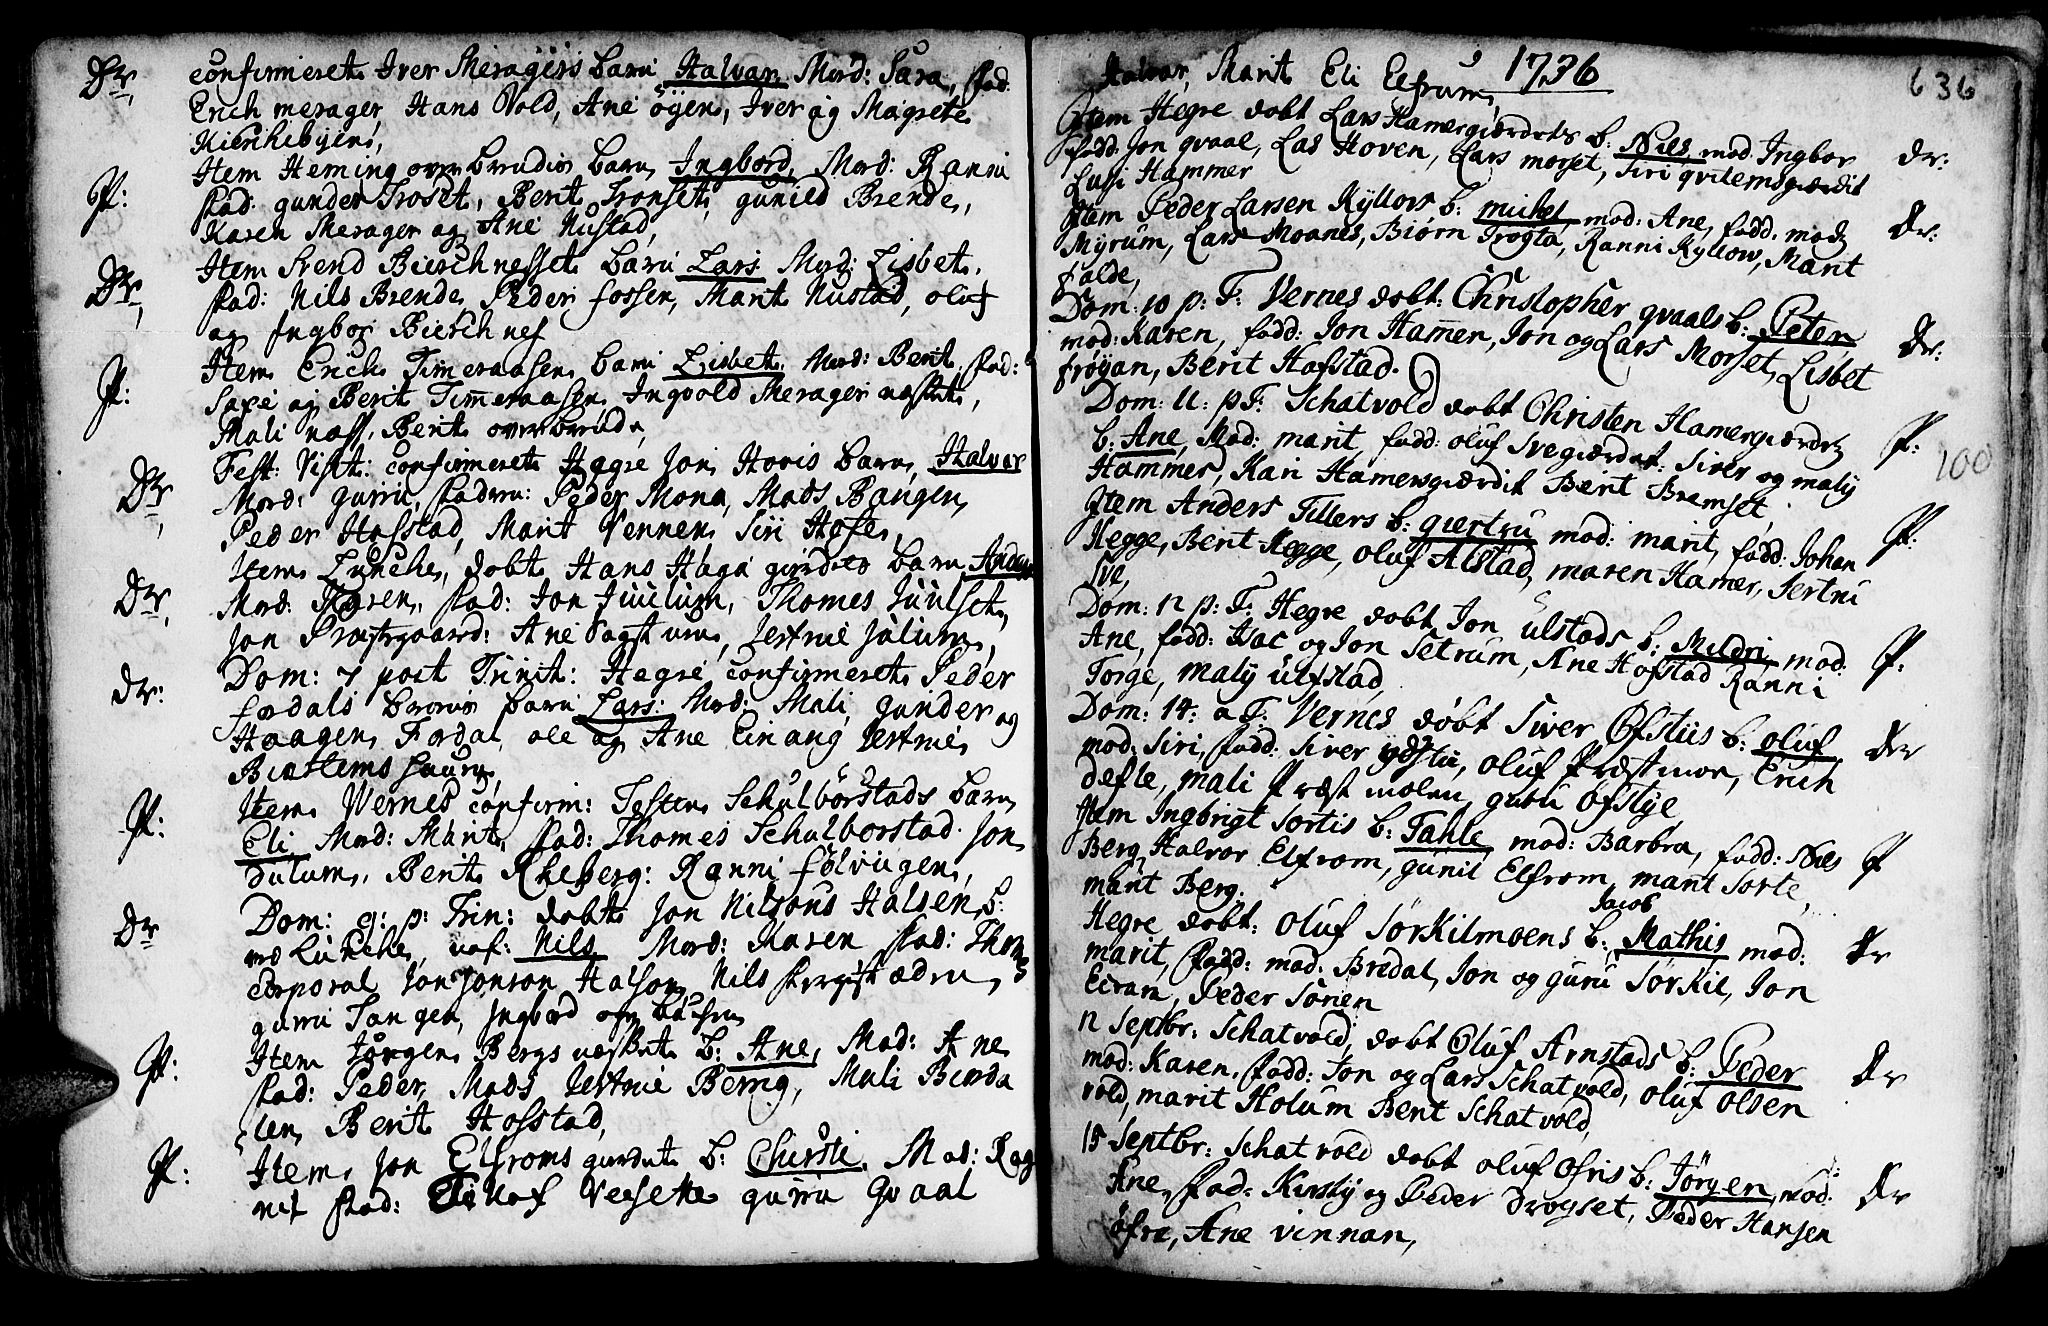 Dr, confirmeret Iver Meragers barn Halvar, Mod: Sara, fad:
Erich merager, Hans Vold, Ane öyen, Iver og Magrete
Kirchebyen,
P: Item Heming overbrudis barn, Ingbord, Mod: Ranni
fad: gunder Troset, Berit Tronset, gunild Brende,
Karen Merager og Ane Nustad,
Dr, Item Svend Bierchnesset barn Lars Mod: Lisbet,
fad: Nils Brende, Peder fossen, Marit Nustad, oluf
og Ingbor Bierchnes
P: Item Erich Timeraasen barn Lisbet, Mod: Berit, fad:
og Berit Timeraasen Ingvold Merager
Mali Berit overbrude,
Dr, Fest: Visit: confirmeret Hegre Jon Hovis barn, Halvor
Mod: gurru, faderne: Peder Mona, Mads Bangen,
Peder Hofstad, Marit Vennen, Siri Hofe,
Dr, Item Lunche, dobt Hans Haga girdet barn Anders
Mod: Karen, fad: Jon Juulum, Thomes Juulset,
Jon Præstgaard: Ane Jertrue Julum,
dr: Dom: 7 post Trinit: Hegre confirmeret Peder
fordals barn Lars: Mod: Mali, gunder og
Haagen Fordal, ole og Ane Einang Jertrue
P: Item Wernes confirm: Testen Schulbörstads barn
Eli, Mod: Marit, fad: Thomes Schulborstad. Jon
dulum, Berit Rheberg: Ranni fölvigen,
Dr Dom: 9: p: Trin: dobt Jon Nilsöns Halsen, b:
ved Lunche, naf: Nils, Mod: Karen fad: Thoms
Corporal Jon Jonson Halson, Nils
gurru Tangen, Ingbord
P: Item Jörgen Bergs b: Ane, Mod: Ane
fad: Peder, Mads Jertrue Berrig, Mali Binda
len, Berit Hofstad,
P: Item, Jon Elfroms b: Chirsti, Mod: Rag
nil fad: Versette gurru Qvaal
Halvar, Marit Eli Elfrum, 1736 636
Item Hegre dobt Lars Hamergiærdets b: Niels, mod: Ingbor dr:
fadd: Jon qvaal, Las Hoven, Lars morset, Siri
Lussi Hammer
Item Peder Larsen Kyllows b: michel, mod: Ane, fadd: mads dr:
Myrum, Lars Moanes, Biörn Trogta, Ranni Kyllow, Marit
falde,
Dom: 10 p: T: Vernes dobt: Christopher qvaals b: Peter
mod: Karen, fadd: Jon Hamer, Jon og Lars Morset, Lisbet dr:
fröyan, Berit Hofstad.
Dom: 11: p T: Schatvold dobt Christen Hamergiærdet
b: Ane, Mod: marit, fadd: oluf Svegiærdet: Siver og maly P: 100
Hammer, Kari Hamersgiærdit Berit Bramset,
Item Anders Tillers b: giertru mod: marit, fadd: Johan P:
Hegge, Berit Hegge, oluf Alstad, maren Hamer, Sertru
Sve,
Dom: 12 p: T: Hegre dobt Jon ulstads b: Mildri mod: P:
Ane, fadd: Isac og Jon Setrum, Ane Hofstad Ranni
Torge, maly ulfstad,
Dom: 14: a T: Vernes döbt Siver Öfstiis b: oluf, dr
mod: Siri, fadd: Siver ydstii, oluf Præstmoe, Erich
defle, mali Præstmolen guru öfstye,
Item Ingbrigt Sortis b: Tahle mod: Barbra, fadd: Niels P
Berg, Halvor Elfrom, gunil Elfrom, marit Sorte,
marit Berg.
Jacob
Hegre dobt: oluf Sörkilmoens b: Mathis, mod: dr
marit, fadd: mad: Bredal, Jon og guru Sörkil, Jon
Eiran, Peder Sönen
12 Septbr: Schatvold, dobt Oluf Arnstads b: Peder dr
mod: Karen, fadd: Jon og Lars Schatvold, oluf olsen
vold, marit Holum Berit Schatvold,
15 Septbr: Schatvold dobt oluf Ofris b: Jörgen, mod: dr
Ane, fad: Kirsty og Peder Droyset, Peder Hansen
öfre, Ane vinnan,